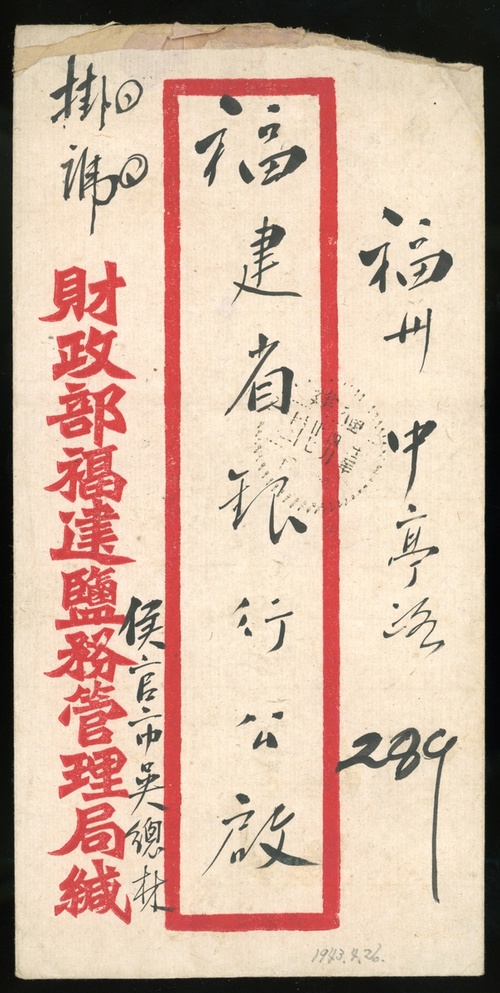 福州中亭路
289
福建省銀行公啟
掛号
號
財政部福建鹽務管理局緘
侯官市吳總林
1943.4.26.